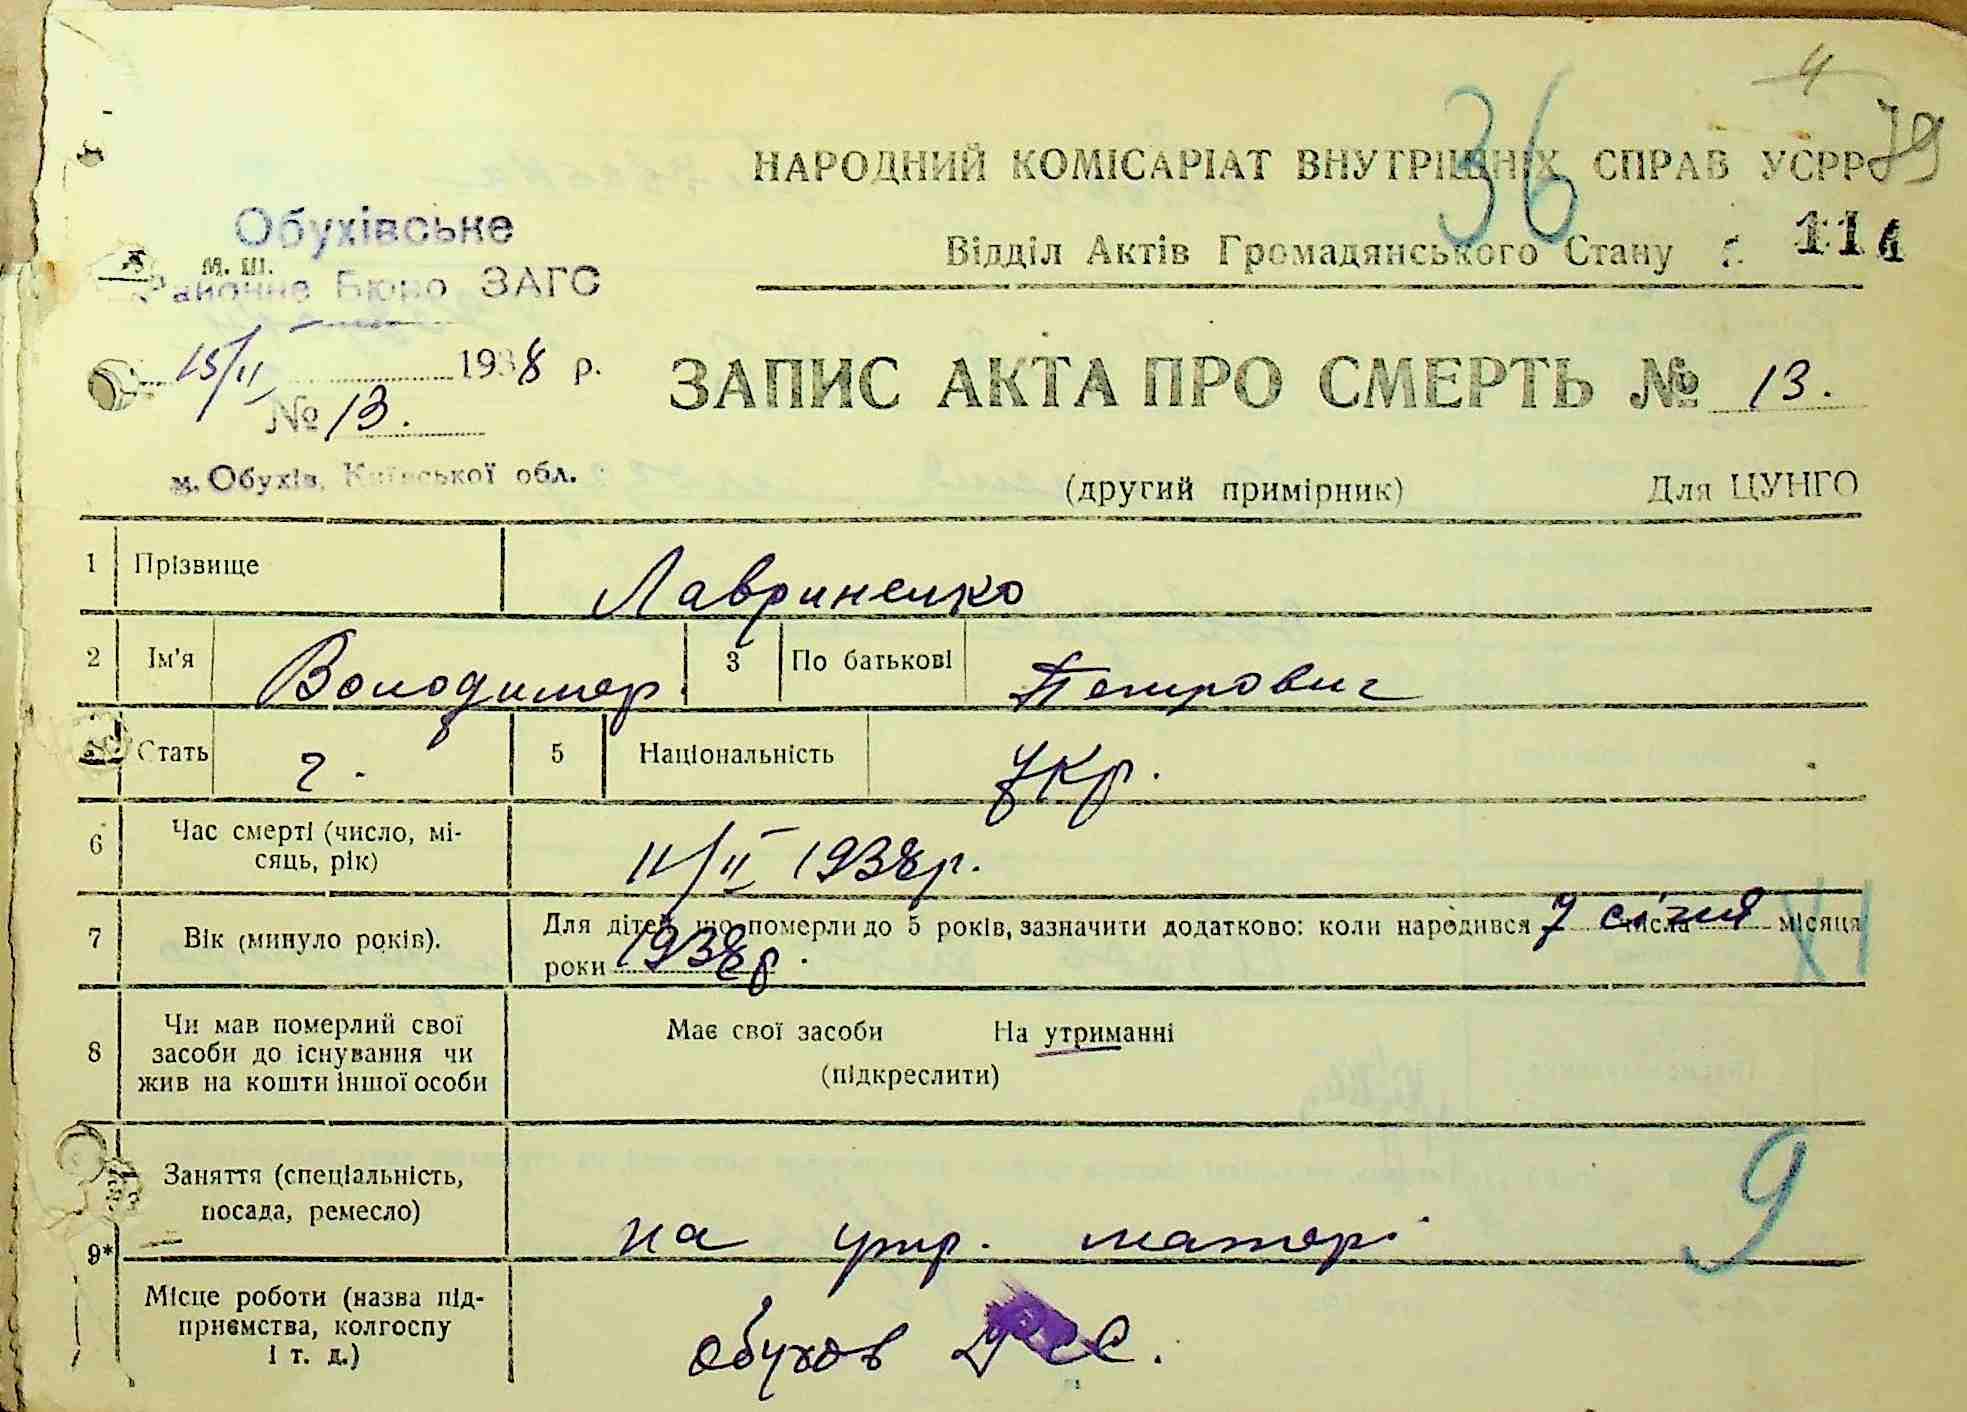 4
36
79
НАРОДНИЙ КОМІСАРІАТ ВНУТРІШНІХ СПРАВ УСРР
Обухівське
м. ш.
Районне Бюро ЗАГС
Відділ Актів Громадянського Стану
11
15/II 1938 р.
№ 13.
ЗАПИС АКТА ПРО СМЕРТЬ № 13.
м. Обухів, Київської обл.
(другий примірник) Для ЦУНГО
1 Прізвище Лавриненко
2 Ім'я Володимер. 3 По батькові Петрович
Стать ч. 5 Національність Укр.
6 Час смерті (число, мі-
сяць, рік) 11/II 1938р.
7 Вік (минуло років). Для дітей, що померли до 5 років, зазначити додатково: коли народився 7 січня числа місяця
роки 1938р.
XI
8 Чи мав померлий свої
засоби до існування чи
жив на кошти іншої особи
Має свої засоби На утриманні
(підкреслити)
9* Заняття (спеціальність,
посада, ремесло) на утр. матері
9
Місце роботи (назва під-
приємства, колгоспу
і т. д.) обухов